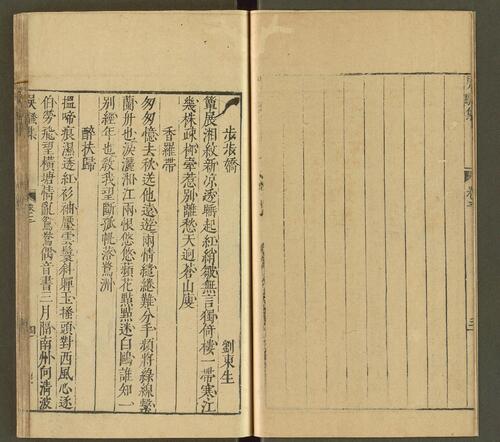 吳騷集
卷三
三
步步嬌
劉東生
簟展湘紋新涼透睡起紅綃皺無言獨倚樓一帶寒江
幾株疎柳牽惹別離愁天迥山
香羅帶
匆匆憶去秋送他遠遊兩情繾綣難分手頻將綠線繫
蘭舟也淚灑湘江兩恨悠悠蘋花點點迷白鷗誰知一
別經年也教我望斷孤帆落鷺洲
醉扶歸
搵啼痕濕透紅衫袖壓雲鬟斜軃玉搔頭對西風心逐
伯勞飛望橫塘情亂鴛鴦偶音書三月隔南州何清波
吳騷集
卷三
四